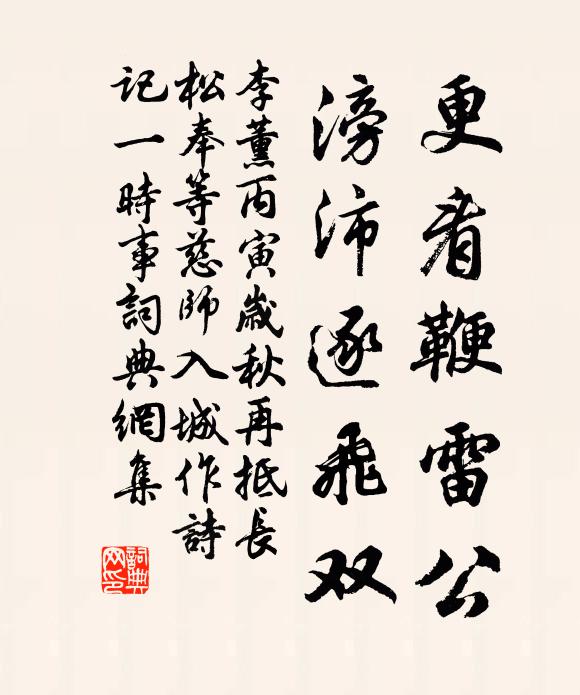 更看鞭雷公
滂沛逐飛双
李薰丙寅歲秋再抵長
松奉等慈師入城作詩
記一時事詞典網集
詞典
网印